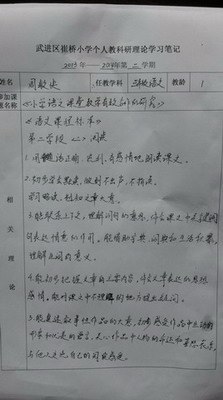 武进区崔桥小学个人教科研理论学习笔记
2013年——2014年第二学期
姓名 周敏史 任教学科 三年级语文 教龄 1
参加课题名称 《小学语文课堂教学有效性的研究》
《语文课程标准》
第二学段 (二) 阅读
1.用普通话正确、流利、有感情地朗读课文。
2.初步学会默读,做到不出声,不指读。
学习略读,粗知文章大意。
3.能联系上下文,理解词句的意思,体会课文中关键词
句表达情意的作用。能借助字典、词典和生活积累,
理解生词的意义。
4.能初步把握文章的主要内容,体会文章表达的思想
感情。能对课文中不理解的地方提出疑问。
5.能复述叙事性作品的大意,初步感受作品中生动的
形象和优美的语言,关心作品中人物的命运和喜怒哀乐,
与他人交流自己的阅读感受。
相
关
理
论